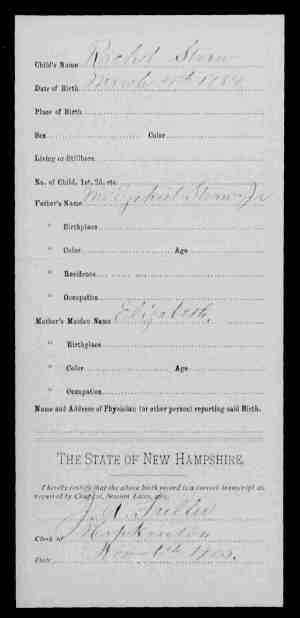 Child's Name Rachel Straw
Date of Birth March 4th 1784
Place of Birth
Sex Color
Living or Stillborn
No. of Child, 1st, 2d, etc.
Father's Name Mr Ezekiel Straw Jr
" Birthplace
" Color Age
" Residence
" Occupation
Mother's Maiden Name Elizabeth
" Birthplace
" Color Age
" Occupation
Name and Address of Physician (or other person) reporting said Birth.
THE STATE OF NEW HAMPSHIRE.
I hereby certify that the above birth record is a correct transcript as
required by Chapter, Session Laws,
Clerk of Hopkinton
Date Nov